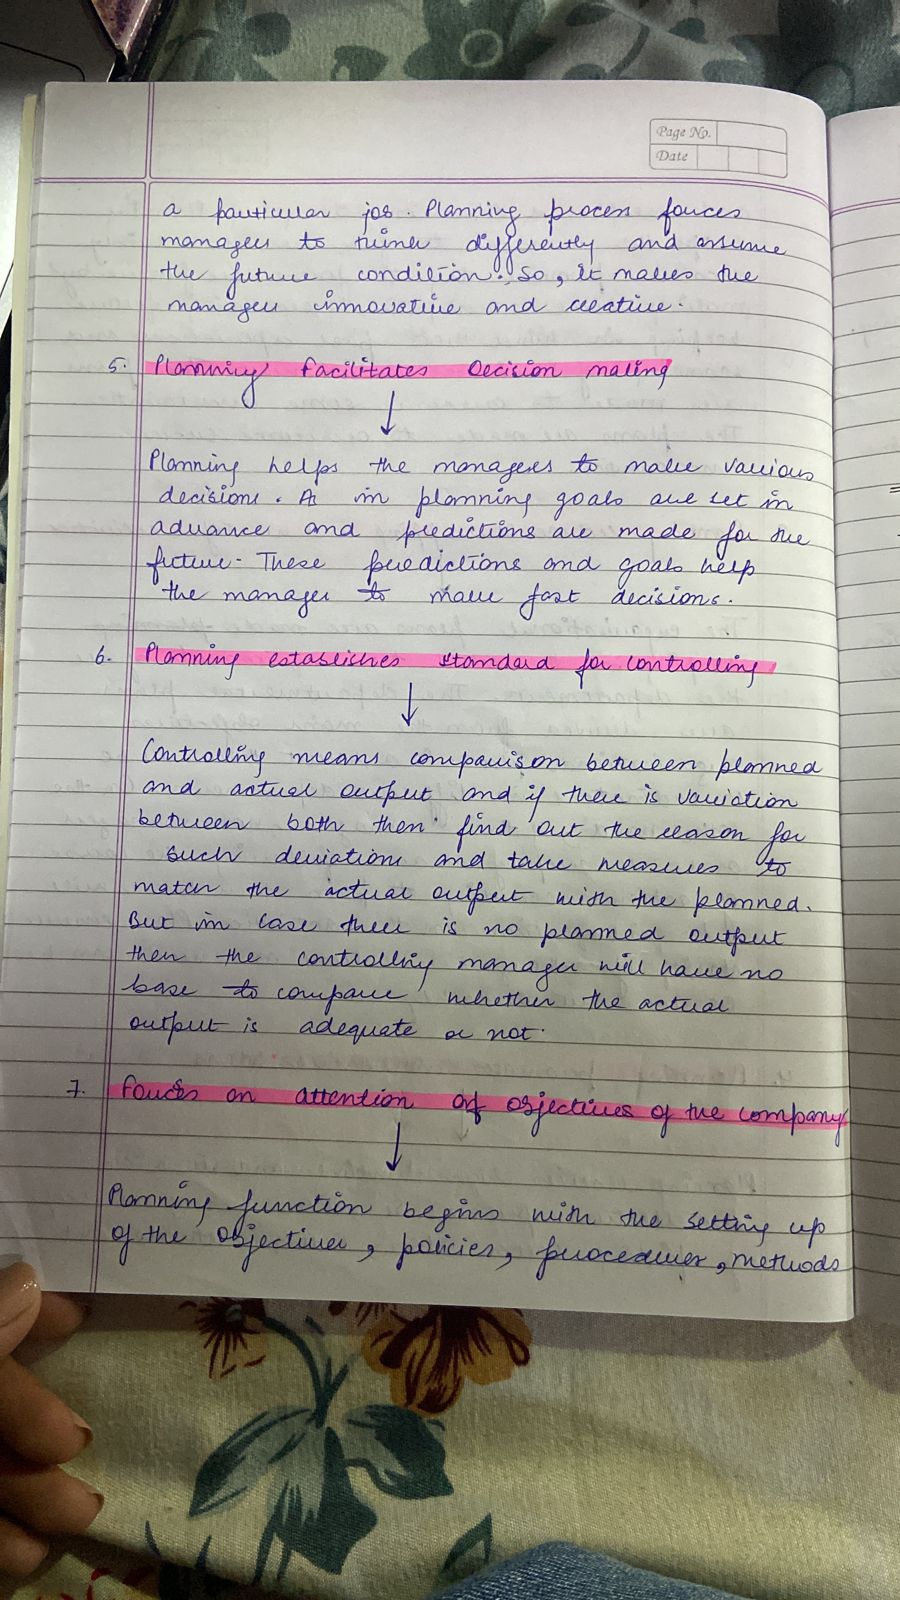 Page No.
Date
a particular job. Planning process forces
managers to think differently and assume
the future condition. So, it makes the
managers innovative and creative.
5. Planning facilitates Decision making
↓
Planning helps the managers to make various
decisions. As in planning goals are set in
advance and predictions are made for the
future. These predictions and goals help
the manager to make fast decisions.
6. Planning establishes standard for controlling
↓
Controlling means comparison between planned
and actual output and if there is variation
between both then find out the reason for
such deviations and take measures to
match the actual output with the planned.
But in case there is no planned output
then the controlling manager will have no
base to compare whether the actual
output is adequate or not.
7. on attention of objectives of the company
↓
Planning function begins with the setting up
of the objectives, policies, procedures, methods